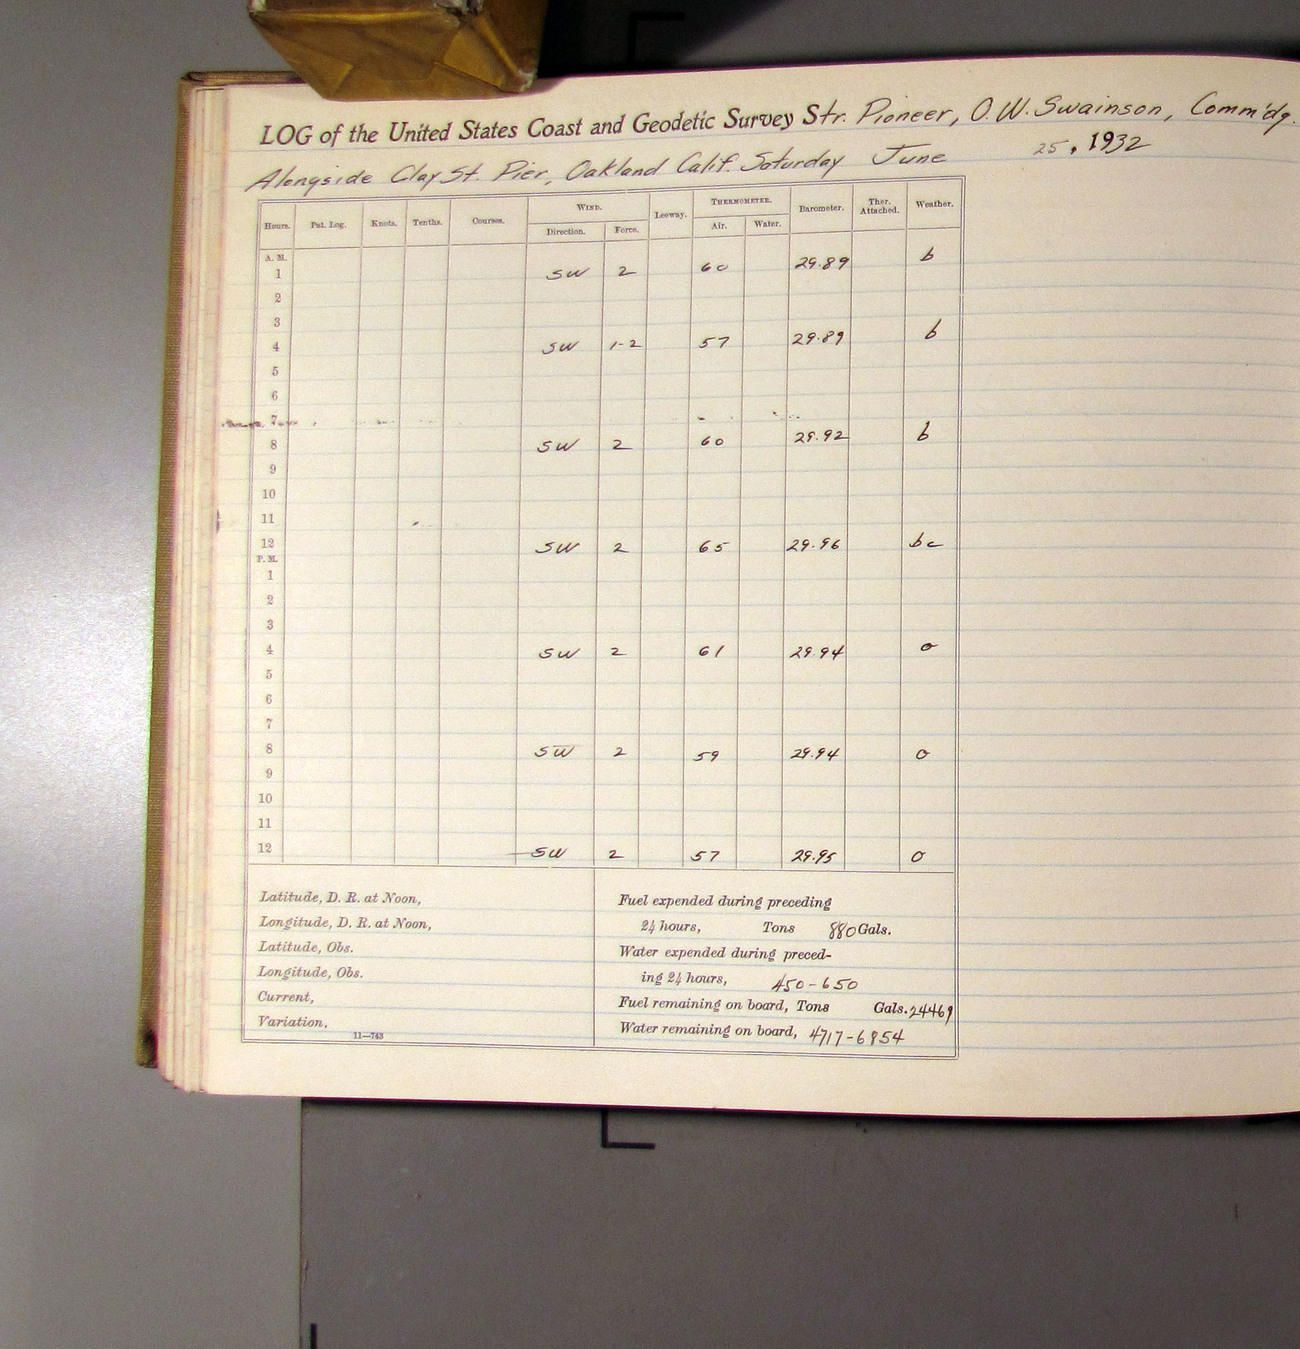 LOG of the United States Coast and Geodetic Survey Str. Pioneer, O. W. Swainson, Comm'dg.
Alongside Clay St. Pier, Oakland Calif. Saturday June 25, 1932
Hours. Pat. Log. Knots. Tenths. Courses. WIND. Leeway. THERMOMETER. Barometer. Ther. Attached. Weather.
Direction. Force. Air. Water.
A. M.
1 SW 2 60 29.89 b
2
3
4 SW 1-2 57 29.89 b
5
6
7
8 SW 2 60 29.92 b
9
10
11
12 SW 2 65 29.96 bc
P. M.
1
2
3
4 SW 2 61 29.94 o
5
6
7
8 SW 2 59 29.94 o
9
10
11
12 SW 2 57 29.95 o
Latitude, D. R. at Noon,
Longitude, D. R. at Noon,
Latitude, Obs.
Longitude, Obs.
Current,
Variation,
11—743
Fuel expended during preceding
24 hours, Tons 880 Gals.
Water expended during preced-
ing 24 hours, 450-650
Fuel remaining on board, Tons Gals. 24469
Water remaining on board, 4717-6854